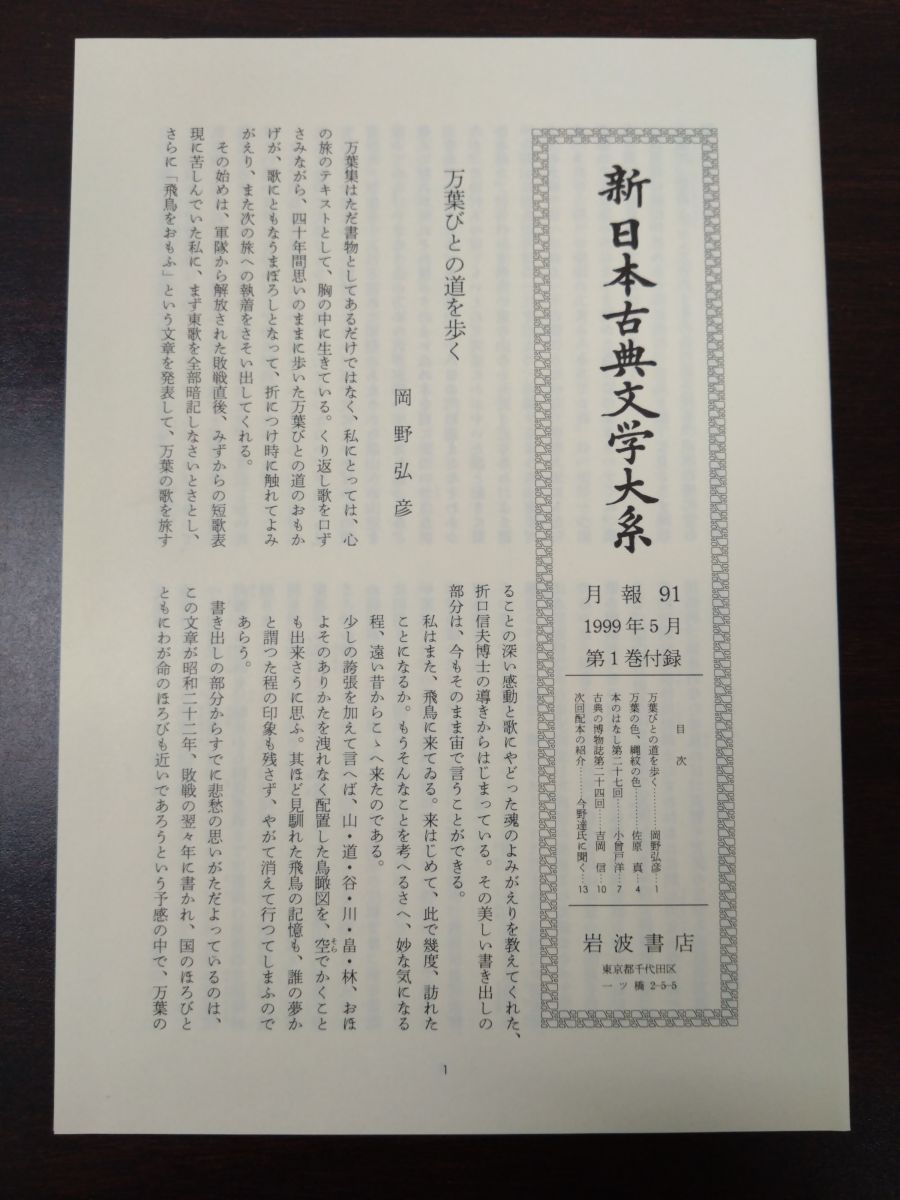 新日本古典文学大系
月報 91
1999年5月
第1巻付録
目次
万葉びとの道を歩く………岡野弘彦…1
万葉の色、縄紋の色………佐原 真…4
本のはなし第二十七回……小曾戸洋…7
古典の博物誌第二十四回……吉岡 信…10
次回配本の紹介………今野達氏に聞く…13
岩波書店
東京都千代田区
一ツ橋2-5-5
万葉びとの道を歩く
岡野弘彦
万葉集はただ書物としてあるだけではなく、私にとっては、心
の旅のテキストとして、胸の中に生きている。くり返し歌を口ず
さみながら、四十年間思いのままに歩いた万葉びとの道のおもか
げが、歌にともなうまぼろしとなって、折につけ時に触れてよみ
がえり、また次の旅への執着をさそい出してくれる。
その始めは、軍隊から解放された敗戦直後、みずからの短歌表
現に苦しんでいた私に、まず東歌を全部暗記しなさいとさとし、
さらに「飛鳥をおもふ」という文章を発表して、万葉の歌を旅す
ることの深い感動と歌にやどった魂のよみがえりを教えてくれた、
折口信夫博士の導きからはじまっている。その美しい書き出しの
部分は、今もそのまま宙で言うことができる。
私はまた、飛鳥に来てゐる。来はじめて、此で幾度、訪れた
ことになるか。もうそんなことを考へるさへ、妙な気になる
程、遠い昔からこゝへ来たのである。
少しの誇張を加えて言へば、山・道・谷・川・畠・林、おほ
よそのありかたを洩れなく配置した鳥瞰図を、空でかくこと
そら
も出来さうに思ふ。其ほど見馴れた飛鳥の記憶も、誰の夢か
と謂つた程の印象も残さず、やがて消えて行つてしまふので
あらう。
書き出しの部分からすでに悲愁の思いがただよっているのは、
この文章が昭和二十二年、敗戦の翌々年に書かれ、国のほろびと
ともにわが命のほろびも近いであろうという予感の中で、万葉の
1